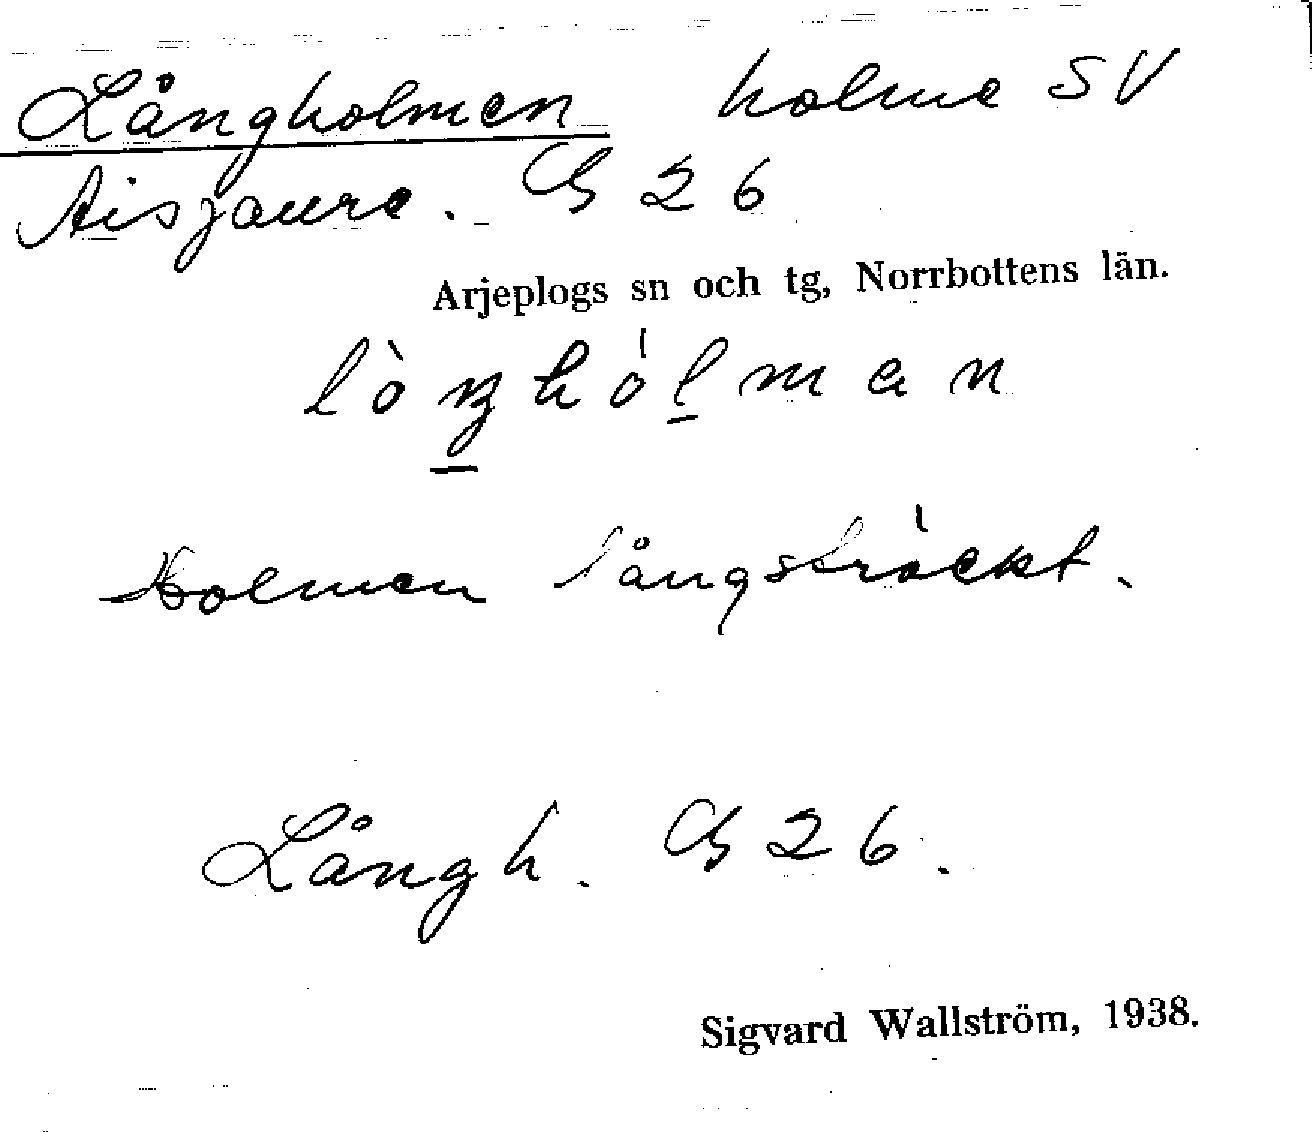 Långholmen holme SV
Aisjaure. G 26
Arjeplogs sn och tg, Norrbottens län.
lòŋhólman
Holmen långsträckt.
Långh. G 26.
Sigvard Wallström, 1938.